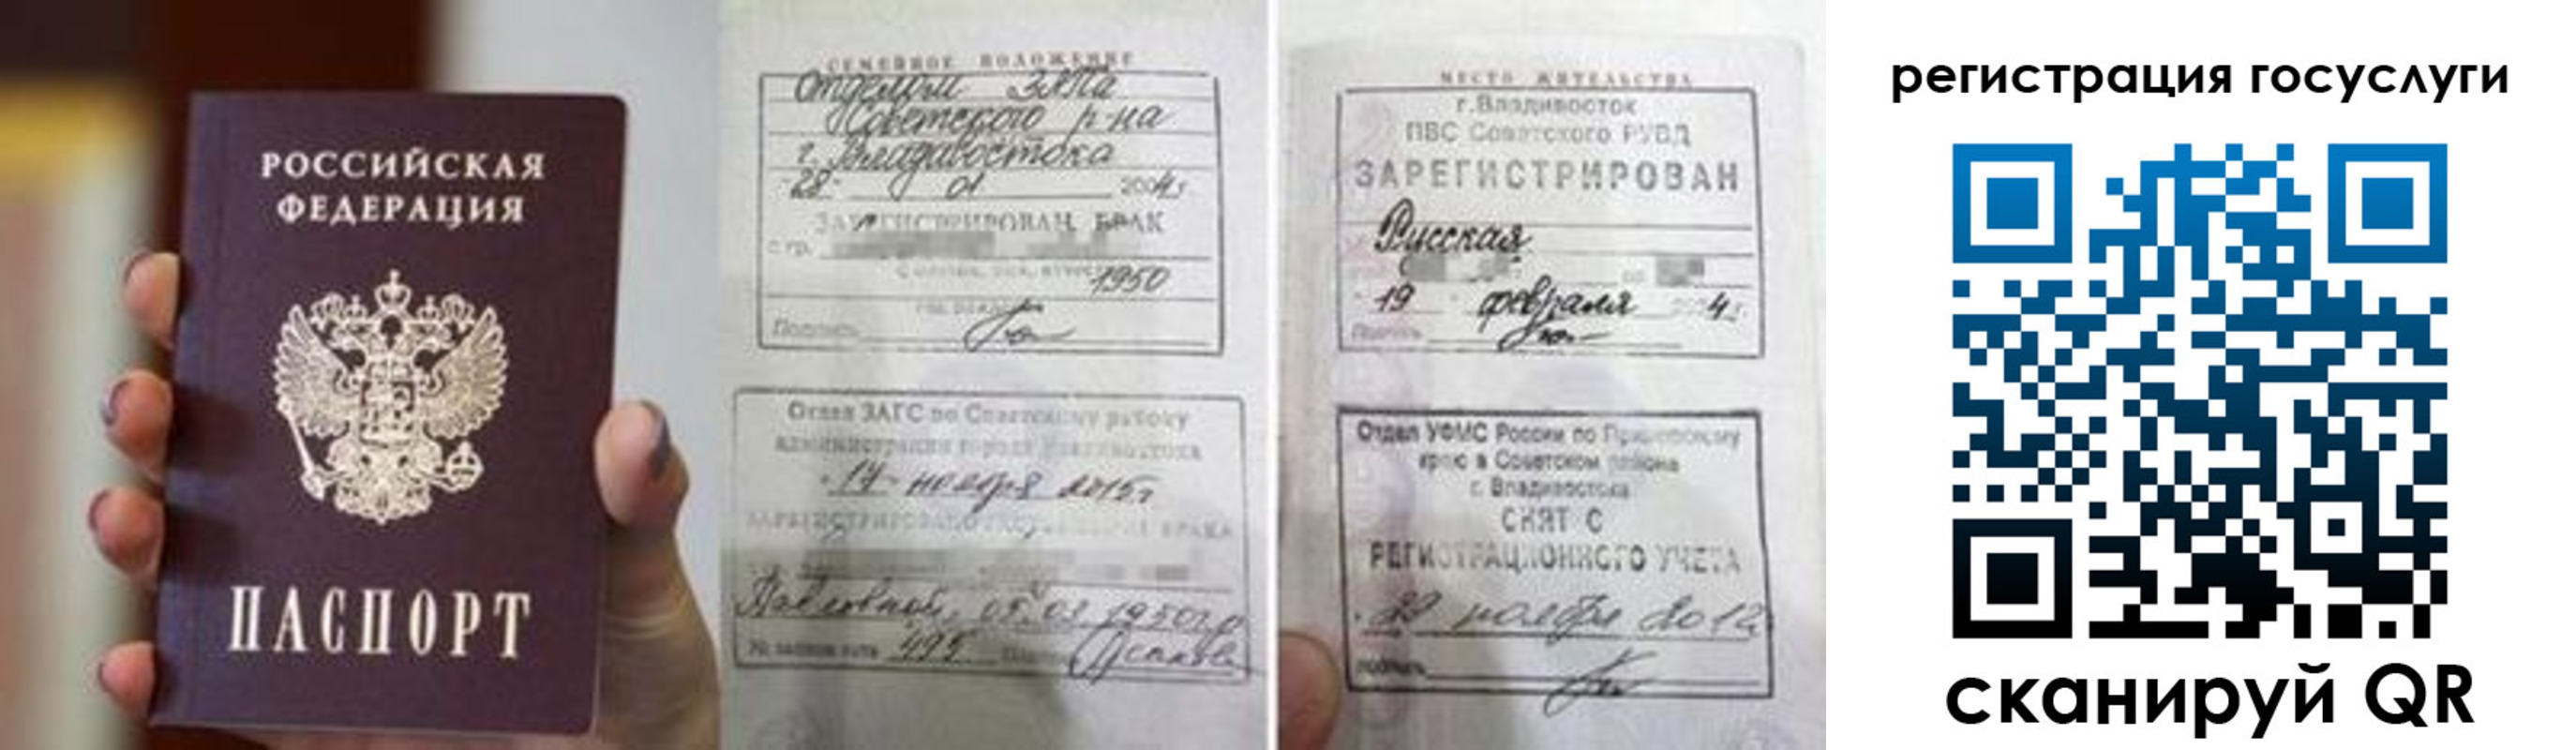 РОССИЙСКАЯ
ФЕДЕРАЦИЯ
ПАСПОРТ
СЕМЕЙНОЕ ПОЛОЖЕНИЕ
Отделом ЗАГСа
Советского р-на
г. Владивостока
"28" 01 2004 г.
ЗАРЕГИСТРИРОВАН БРАК
с гр.
1950
Подпись
Отдел ЗАГС по Советскому району
администрации города Владивостока
"17" ноября 2015 г.
БРАКА
Павловной, 05.03.1950 г.р
495
МЕСТО ЖИТЕЛЬСТВА
г.Владивосток
ПВС Советского РУВД
ЗАРЕГИСТРИРОВАН
Русская
19 февраля 4г.
Подпись
Отдел УФМС России по Приморскому
краю в Советском районе
г. Владивостока
СНЯТ С
РЕГИСТРАЦИОННОГО УЧЕТА
ноября 2012
подпись
регистрация госуслуги
сканируй QR